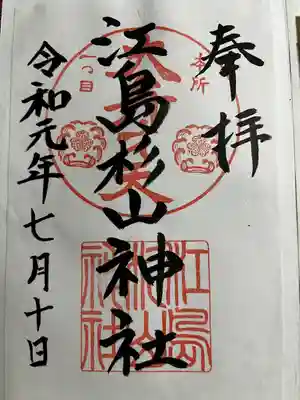 奉拝
本所
一つ目
江島杉山神社
令和元年七月十日
江島
杉山
神社